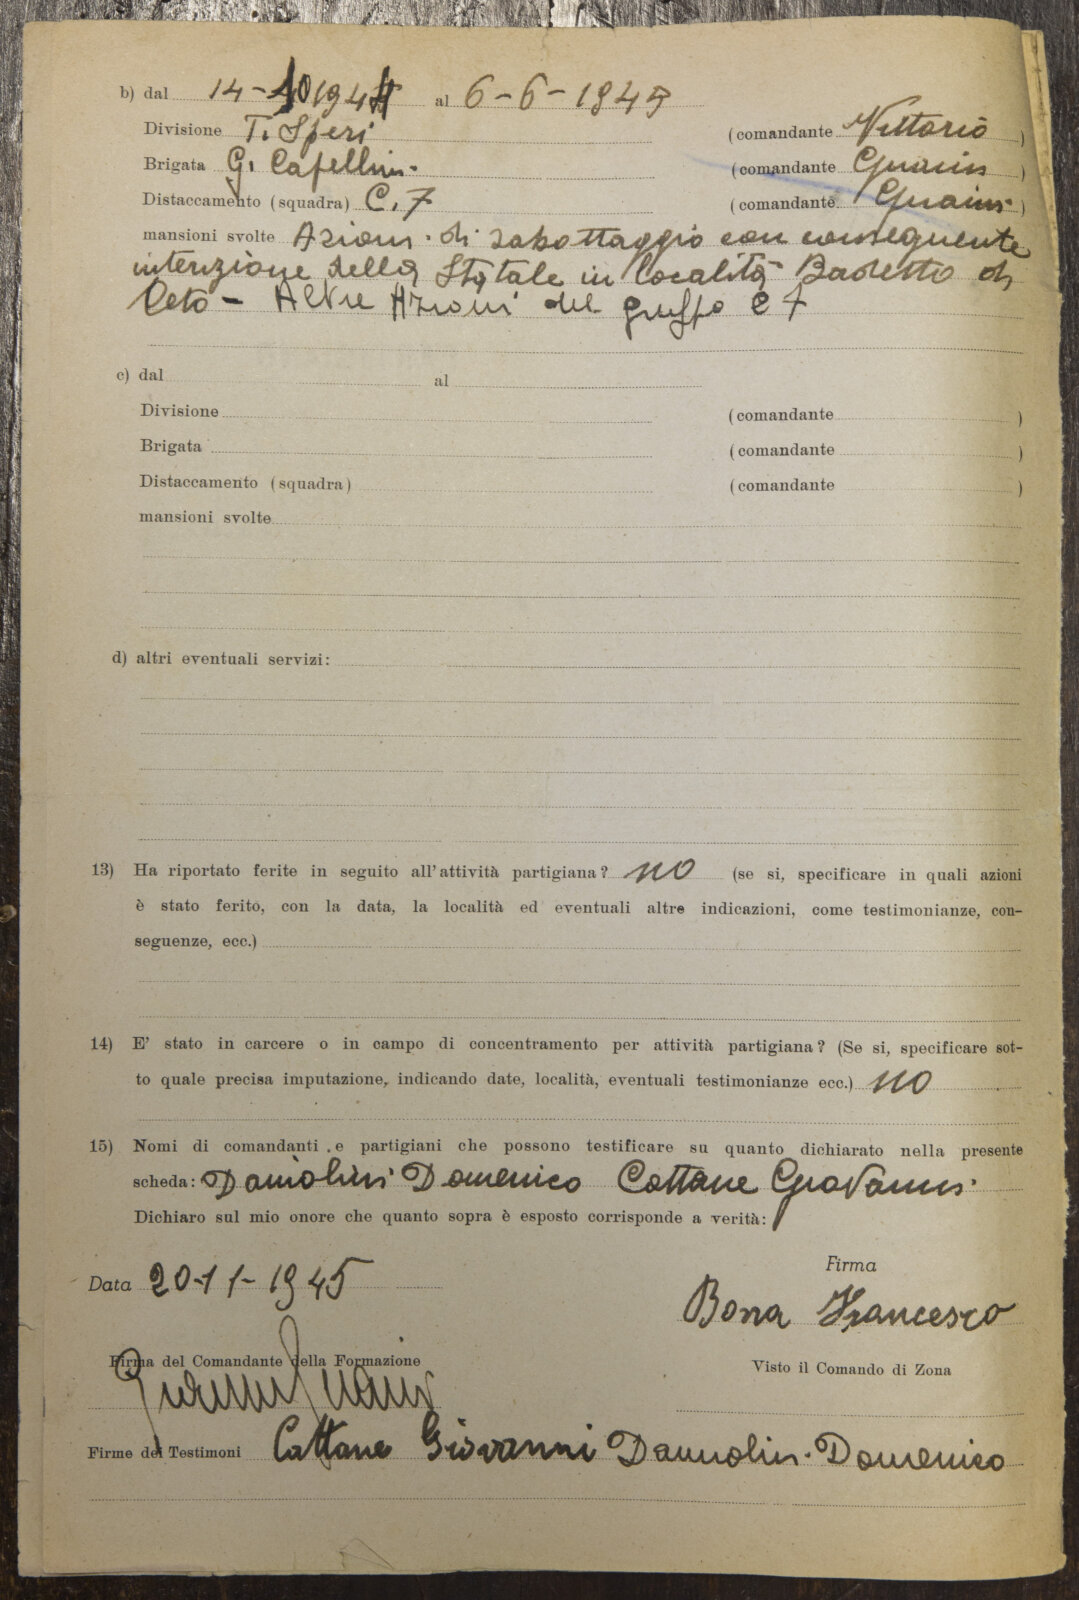 b) dal 14-10 1944 al 6-6-1945
Divisione T. Speri (comandante Vittorio )
Brigata G. Capellini (comandante Guaini )
Distaccamento (squadra) C. 7 (comandante Guaini )
mansioni svolte Azioni di sabottaggio con conseguente
interuzione della Statale in località Badetto di
Ceto - Altre Azioni del gruppo C 7
c) dal al
Divisione (comandante )
Brigata (comandante )
Distaccamento (squadra) (comandante )
mansioni svolte
d) altri eventuali servizi:
13) Ha riportato ferite in seguito all'attività partigiana? no (se si, specificare in quali azioni
è stato ferito, con la data, la località ed eventuali altre indicazioni, come testimonianze, con-
seguenze, ecc.)
14) E' stato in carcere o in campo di concentramento per attività partigiana? (Se si, specificare sot-
to quale precisa imputazione, indicando date, località, eventuali testimonianze ecc.) no
15) Nomi di comandanti e partigiani che possono testificare su quanto dichiarato nella presente
scheda: Damiolini Domenico Cattane Giovanni
Dichiaro sul mio onore che quanto sopra è esposto corrisponde a verità:
Data 20-11-1945
Firma
Bona Francesco
Firma del Comandante della Formazione
Visto il Comando di Zona
Firme dei Testimoni Cattane Giovanni Damiolini Domenico